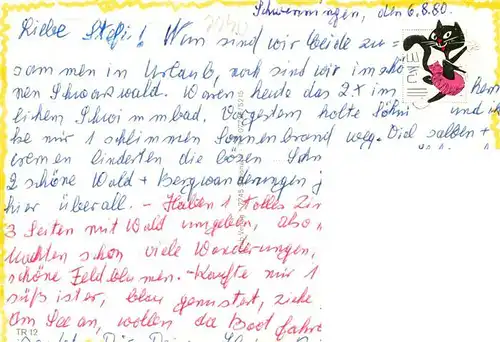 Schwenningen, den 6.8.80.
Liebe Stefi! Nun sind wir beide zu=
sammen in Urlaub, noch sind wir im schö
nen Schwarzwald. Waren heute das 2x im herr
lichem Schwimmbad. Vorgestern holte Söhni und
be mir 1 schlimmen Sonnenbrand weg. Viel salben +
cremen linderten die bösen
2 schöne Wald + Bergwanderungen
hier überall. - Haben 1 tolles Zim
3 Seiten mit Wald umgeben, also
Machten schon viele Wanderungen,
schöne Feldblumen. - Kaufte mir 1
süß ist er, blau gemustert, ziehe
Am See an, wollen da Boot fahre
TR 12